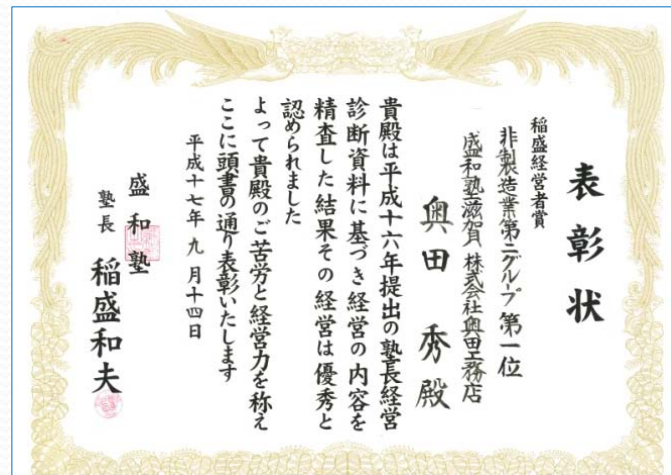 表彰状
稲盛経営者賞
非製造業第二グループ 第一位
盛和塾滋賀 株式会社奥田工務店
奥田 秀殿
貴殿は平成十六年提出の塾長経営
診断資料に基づき経営の内容を
精査した結果その経営は優秀と
認められました
よって貴殿のご苦労と経営力を称え
ここに頭書の通り表彰いたします
平成十七年九月十四日
盛和塾
塾長 稲盛和夫